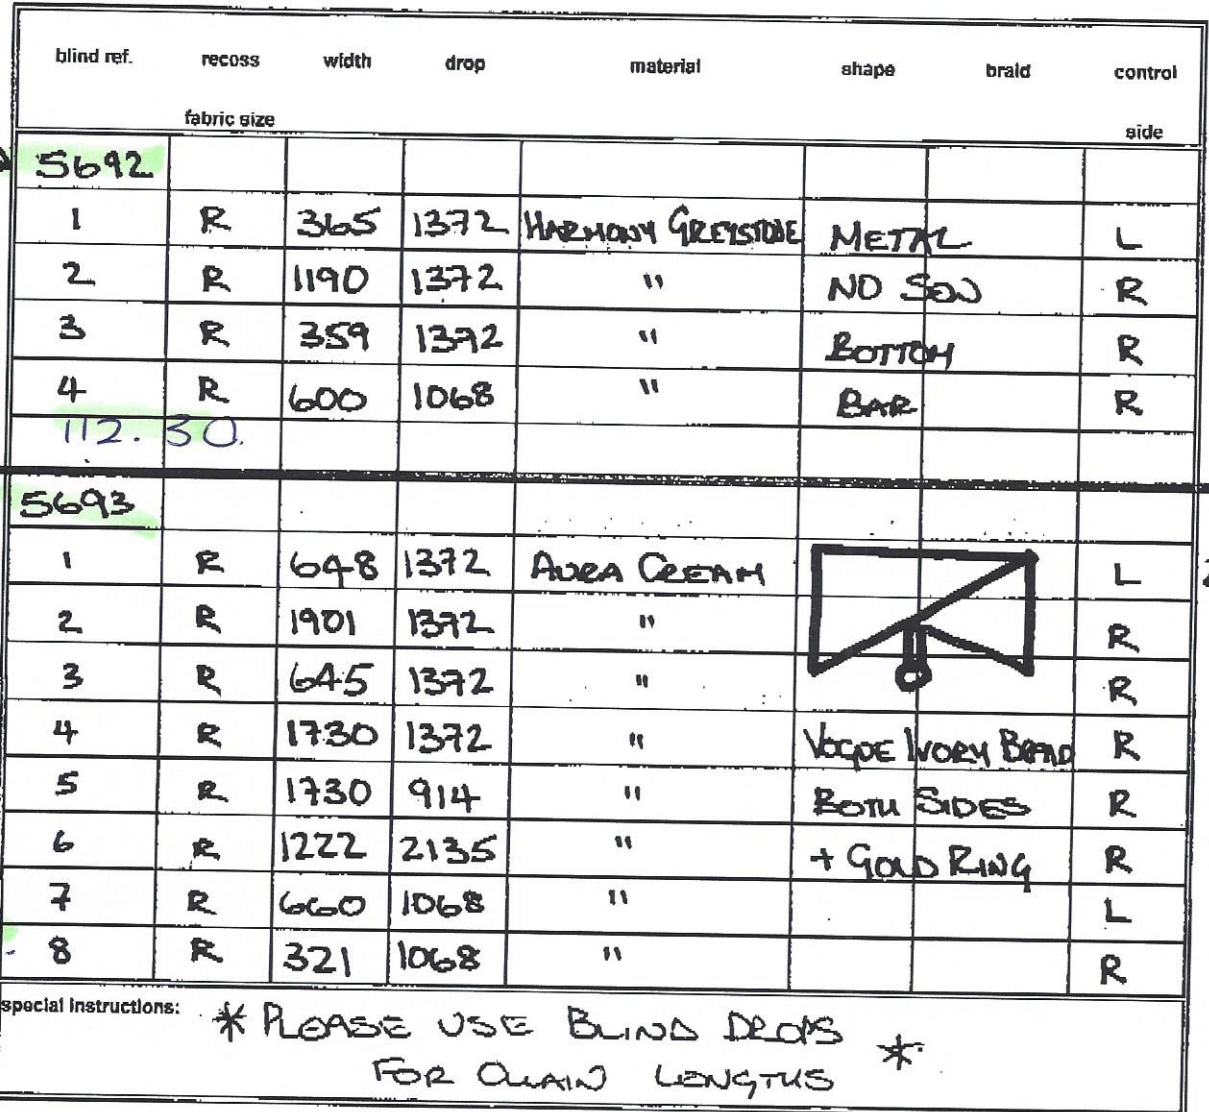 blind ref. recess width drop material shape braid control
fabric size side
5692
1 R 365 1372 HARMONY GREYSTONE METAL L
2 R 1190 1372 " NO SEW R
3 R 359 1372 " BOTTOM R
4 R 600 1068 " BAR R
112.30
5693
1 R 648 1372 AURA CREAM L
2 R 1901 1372 " R
3 R 645 1372 " R
4 R 1730 1372 " VOGUE IVORY BRAID R
5 R 1730 914 " BOTH SIDES R
6 R 1222 2135 " + GOLD RING R
7 R 660 1068 " L
8 R 321 1068 " R
special instructions: * PLEASE USE BLIND DROPS *
FOR CHAIN LENGTHS